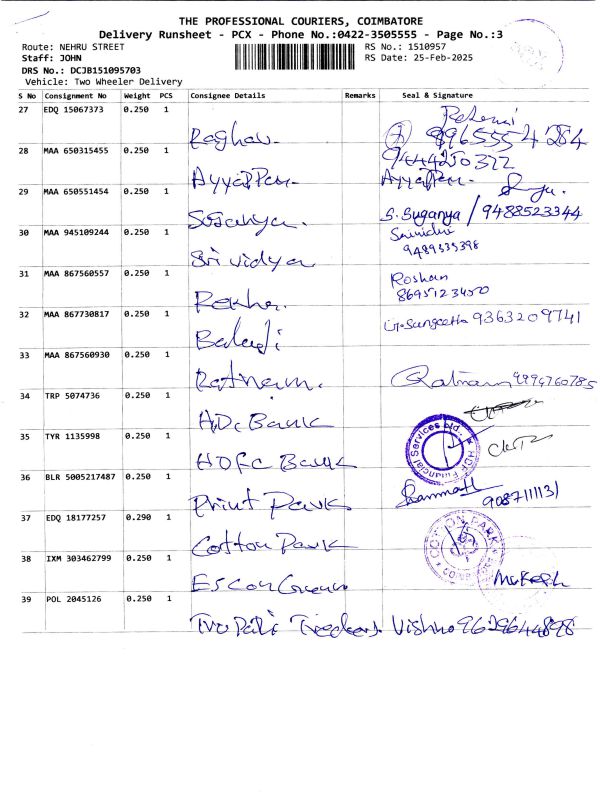 THE PROFESSIONAL COURIERS, COIMBATORE
Delivery Runsheet - PCX - Phone No.:0422-3505555 - Page No.:3
Route: NEHRU STREET RS No.: 1510957
Staff: JOHN RS Date: 25-Feb-2025
DRS No.: DCJB151095703
Vehicle: Two Wheeler Delivery
S No Consignment No Weight PCS Consignee Details Remarks Seal & Signature
27 EDQ 15067373 0.250 1 Raghav.
28 MAA 650315455 0.250 1 Ayyappan. 9444250322
Ayyappan.
29 MAA 650551454 0.250 1 S. Suganya / 9488523344
30 MAA 945109244 0.250 1 Srividya Srinidhi
9489335398
31 MAA 867560557 0.250 1 Rekha. Roshan
8695123450
32 MAA 867730817 0.250 1 Balaji Sangeetha 9363209741
33 MAA 867560930 0.250 1 Ratnam. Ratnam 9994760785
34 TRP 5074736 0.250 1 HDFC Bank
35 TYR 1135998 0.250 1 HDFC Bank Financial Services Ltd.
36 BLR 5005217487 0.250 1 Print Park 9087111131
37 EDQ 18177257 0.290 1 Cotton Park COTTON PARK
38 IXM 303462799 0.250 1
39 POL 2045126 0.250 1 Vishnu 9629644898